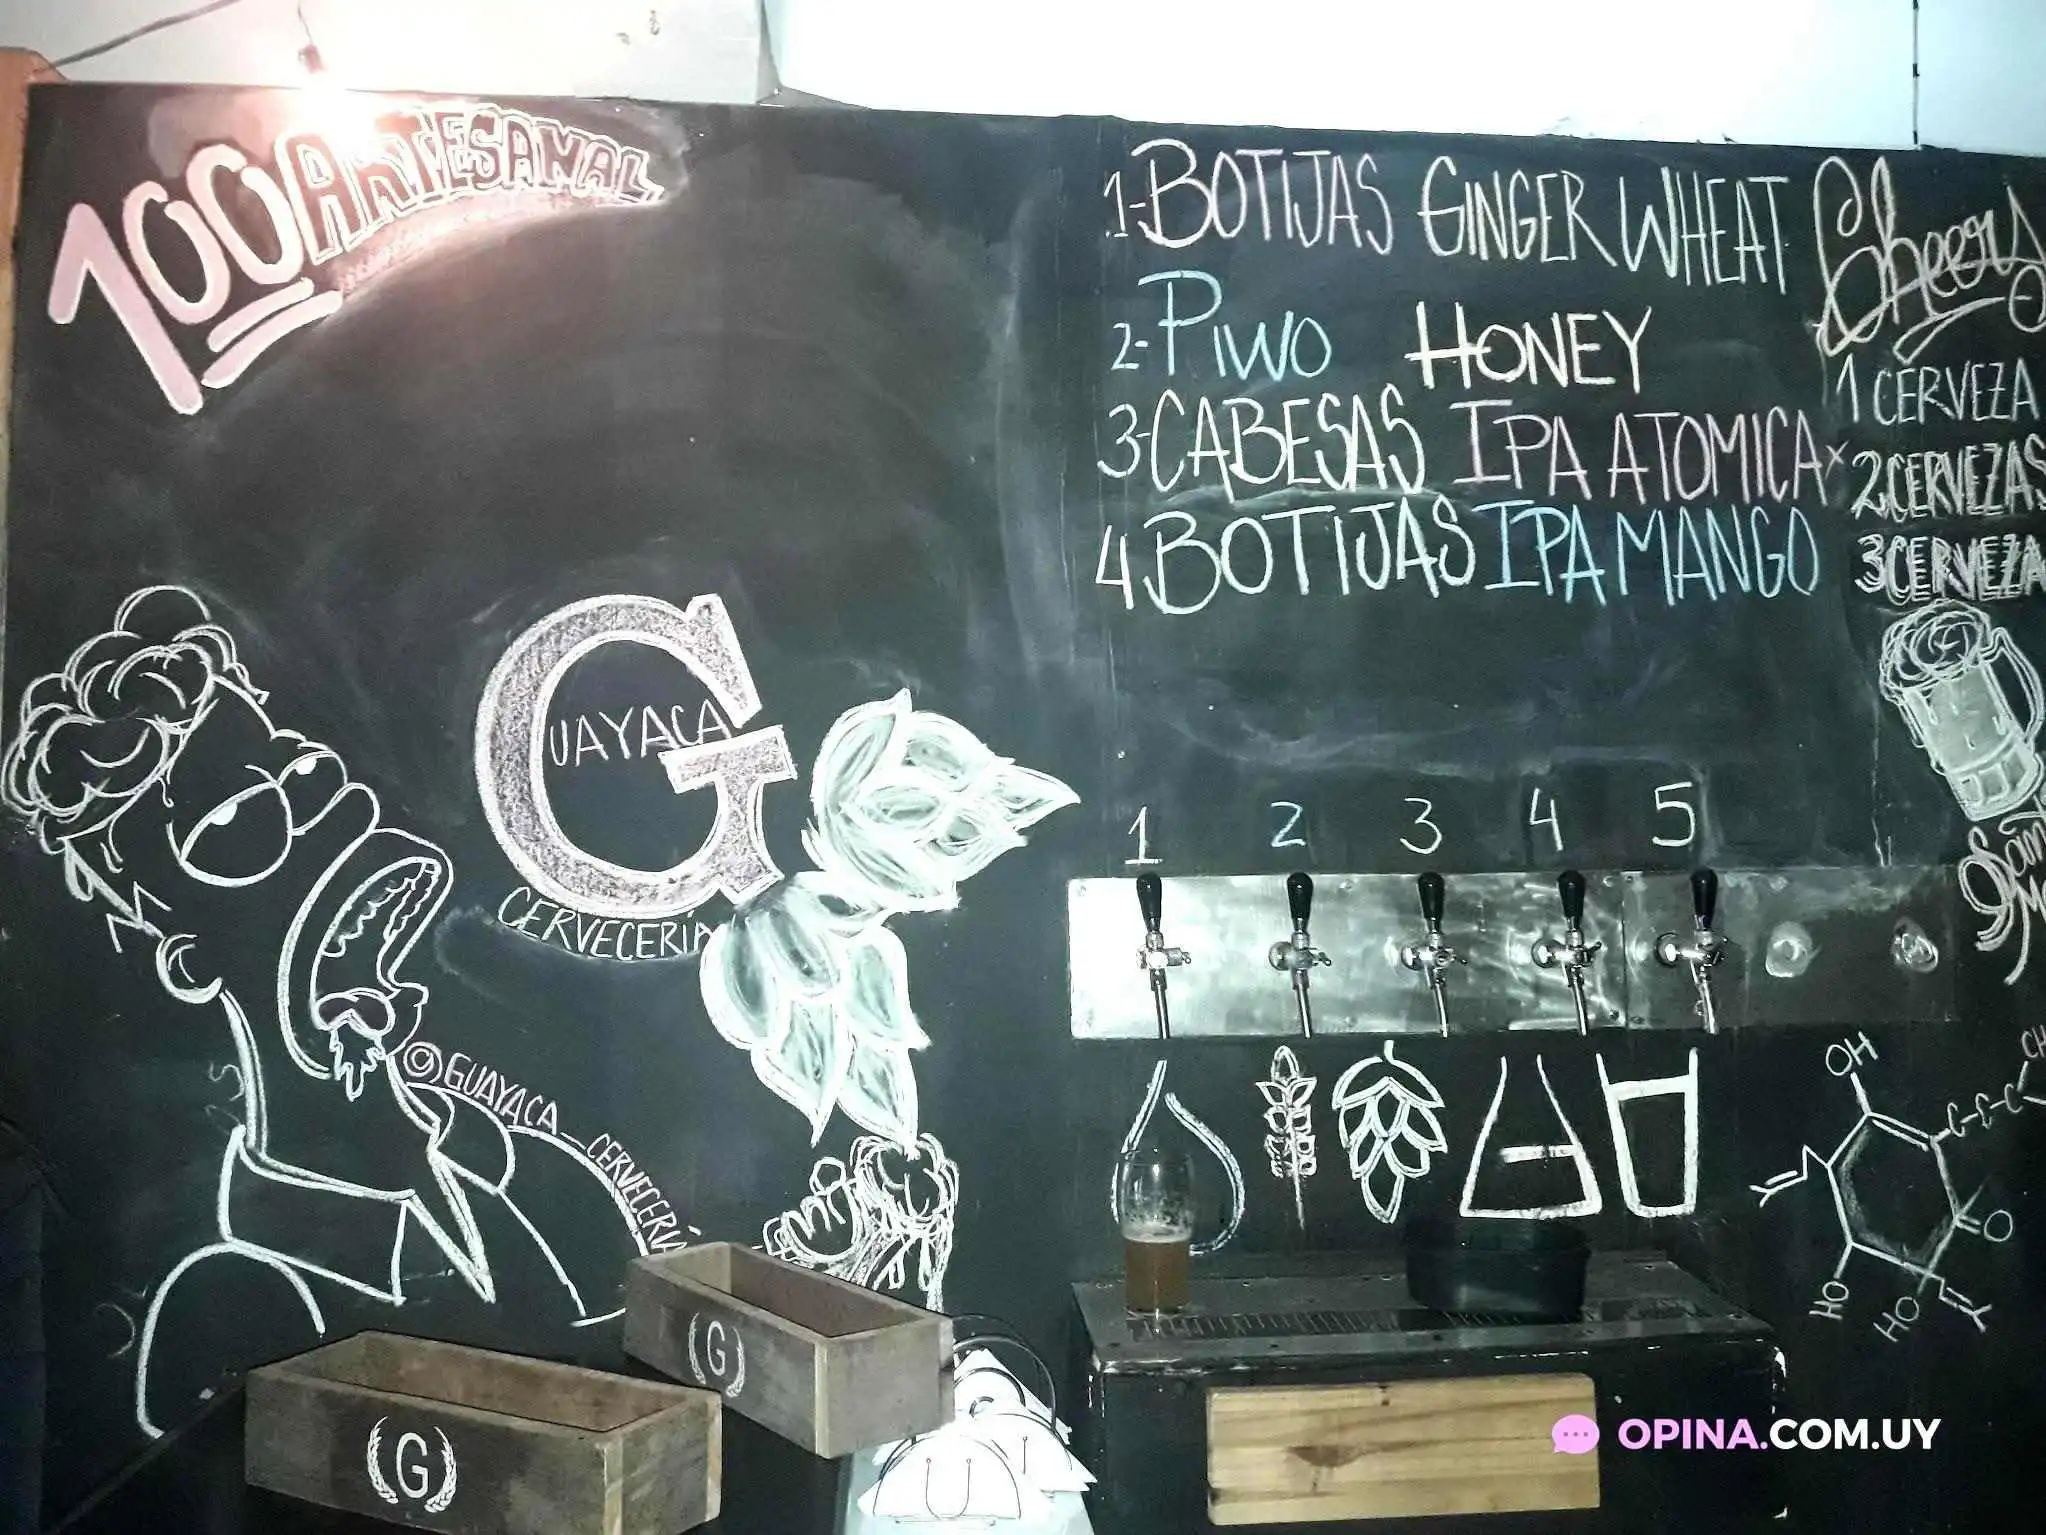 100 ARTESANAL
1-BOTIJAS GINGER WHEAT
2-PIWO HONEY
3-CABESAS IPA ATOMICA
4 BOTIJAS IPA MANGO
Cheers
1 CERVEZA
2 CERVEZAS
3 CERVEZA
GUAYACA
CERVECERÍA
1 2 3 4 5
@GUAYACA_CERVECERÍA
OH
C-C-C
CH
O
HO
HO
G
G
OPINA.COM.UY